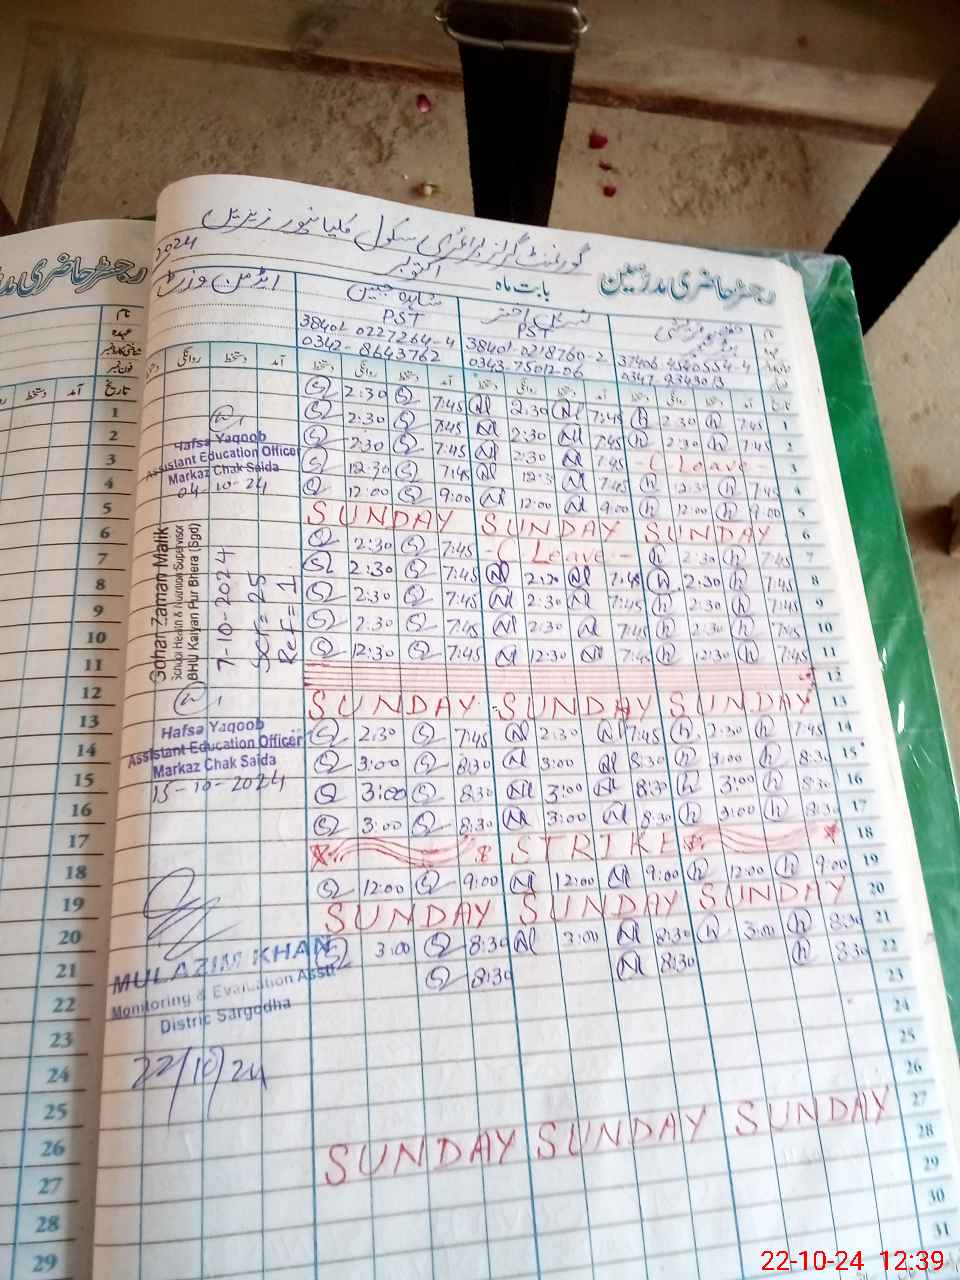 گورنمنٹ گرلز پرائمری سکول کلیانپور
رجسٹر حاضری مدرسین
بابت ماہ اکتوبر 2024
رجسٹر حاضری
شاہدہ جبین
PST PST
38401-0227264-4 38401-0218760-2 37406-4540554-4
0342-8643762 0343-7501206
نام
عہدہ
تاریخ آمد دستخط روانگی دستخط
2:30 7:45 2:30 7:45 2:30 7:45 1
2:30 7:45 2:30 7:45 2:30 7:45 2
2:30 7:45 2:30 7:45 Leave 3
12:30 7:45 12:30 7:45 12:30 7:45 4
12:00 9:00 12:00 9:00 12:00 9:00 5
SUNDAY SUNDAY SUNDAY 6
2:30 7:45 Leave 2:30 7:45 7
2:30 7:45 2:30 7:45 2:30 7:45 8
2:30 7:45 2:30 7:45 2:30 7:45 9
2:30 7:45 2:30 7:45 2:30 7:45 10
12:30 7:45 12:30 7:45 12:30 7:45 11
12
SUNDAY SUNDAY SUNDAY 13
2:30 7:45 2:30 7:45 2:30 7:45 14
3:00 8:30 3:00 8:30 3:00 8:30 15
3:00 8:30 3:00 8:30 3:00 8:30 16
3:00 8:30 3:00 8:30 3:00 8:30 17
STRIKE 18
12:00 9:00 12:00 9:00 12:00 9:00 19
SUNDAY SUNDAY SUNDAY 20
3:00 8:30 3:00 8:30 3:00 8:30 21
8:30 8:30 8:30 22
23
24
25
26
SUNDAY SUNDAY SUNDAY 27
28
29
30
31
Hafsa Yaqoob
Assistant Education Officer
Markaz Chak Saida
04-10-24
Gohar Zaman Malik
School Health & Nutrition Supervisor
BHU Kalyan Pur Bhera (Sgd)
7-10-2024
Scr = 25
Ref = 1
Hafsa Yaqoob
Assistant Education Officer
Markaz Chak Saida
15-10-2024
MULAZIM KHAN
Monitoring & Evaluation Asstt
Distric Sargodha
22/10/24
تاریخ آمد دستخط
1
2
3
4
5
6
7
8
9
10
11
12
13
14
15
16
17
18
19
20
21
22
23
24
25
26
27
28
29
22-10-24 12:39